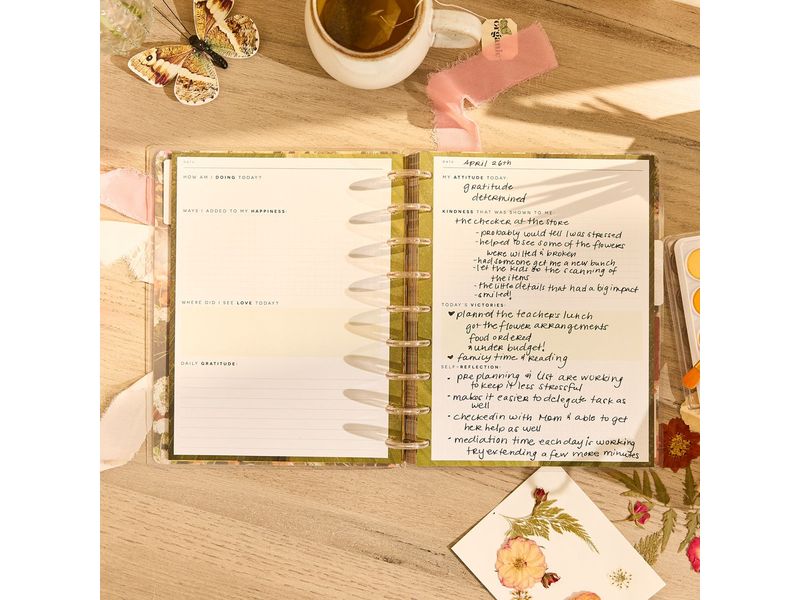 organic
DATE
HOW AM I DOING TODAY?
WAYS I ADDED TO MY HAPPINESS:
WHERE DID I SEE LOVE TODAY?
DAILY GRATITUDE:
DATE APRIL 26th
MY ATTITUDE TODAY:
gratitude
determined
KINDNESS THAT WAS SHOWN TO ME:
the checker at the store
- probably could tell I was stressed
- helped to see some of the flowers
were wilted & broken
- had someone get me a new bunch
- let the kids do the scanning of
the items
- the little details that had a big impact
- smiled!
TODAY'S VICTORIES:
♥ planned the teacher's lunch
got the flower arrangements
food ordered
* under budget!
♥ family time & reading
SELF-REFLECTION:
• preplanning & list are working
to keep it less stressful
• makes it easier to delegate task as
well
• checked in with Mom & able to get
her help as well
• mediation time each day is working
try extending a few more minutes